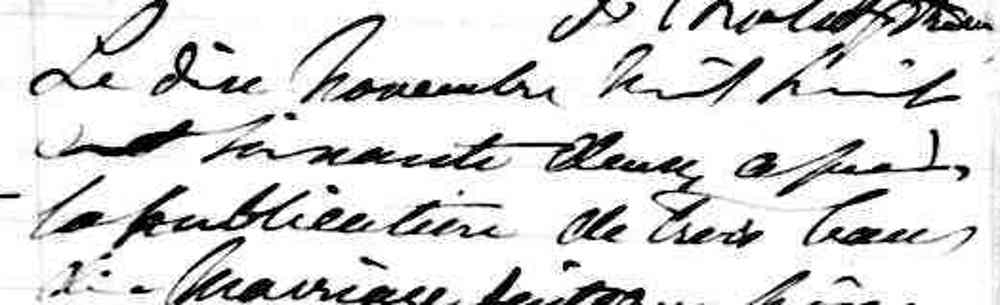 Le dix Novembre mil huit
cent soixante deux, après
la publication de trois bans
de Mariage faite